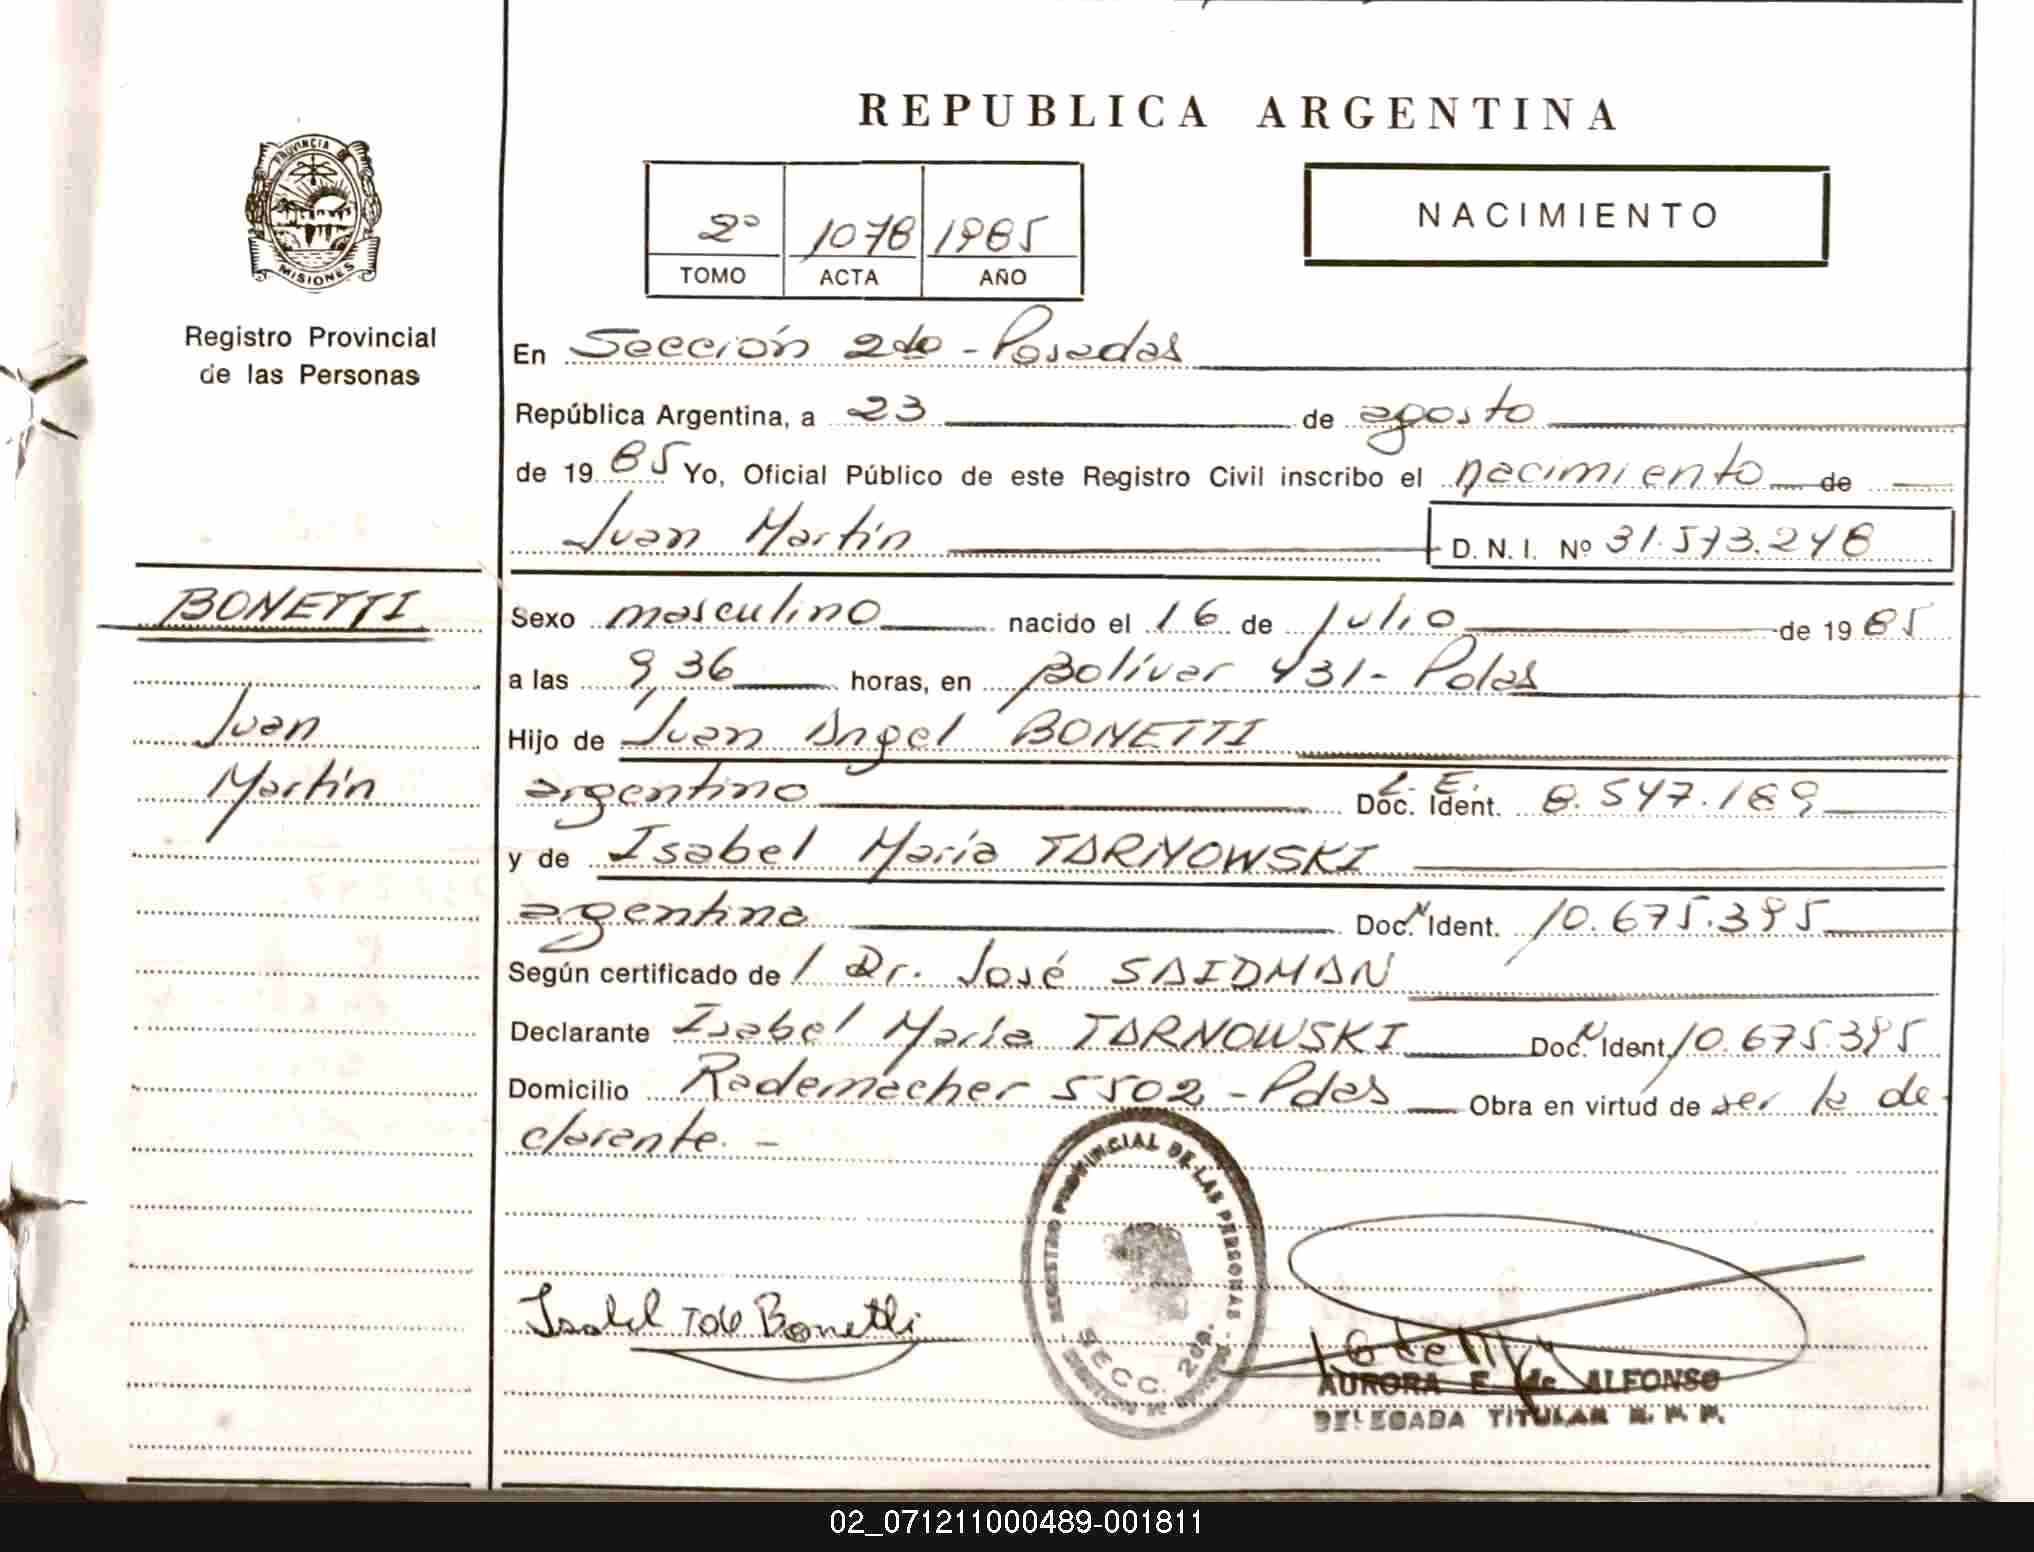 REPUBLICA ARGENTINA
PROVINCIA DE
MISIONES
Registro Provincial
de las Personas
2º 1078 1985
TOMO ACTA AÑO
NACIMIENTO
En Sección 2da - Posadas
República Argentina, a 23 de agosto
de 1985 Yo, Oficial Público de este Registro Civil inscribo el nacimiento de
Juan Martín D. N. I. Nº 31.573.248
BONETTI
Juan
Martín
Sexo masculino nacido el 16 de julio de 1985
a las 9,36 horas, en Bolívar 431 - Pdas
Hijo de Juan Angel BONETTI
argentino L. E. Doc. Ident. 8.547.189
y de Isabel María TARNOWSKI
argentina Doc. Ident. 10.675.395
Según certificado de / Dr. José SAIDMAN
Declarante Isabel María TARNOWSKI Doc. Ident. 10.675.395
Domicilio Rademacher 5502 - Pdas Obra en virtud de ser la de
clarante. -
REGISTRO PROVINCIAL DE LAS PERSONAS
SECC. 2da.
Isabel T de Bonetti
AURORA E. de ALFONSO
DELEGADA TITULAR
02_071211000489-001811